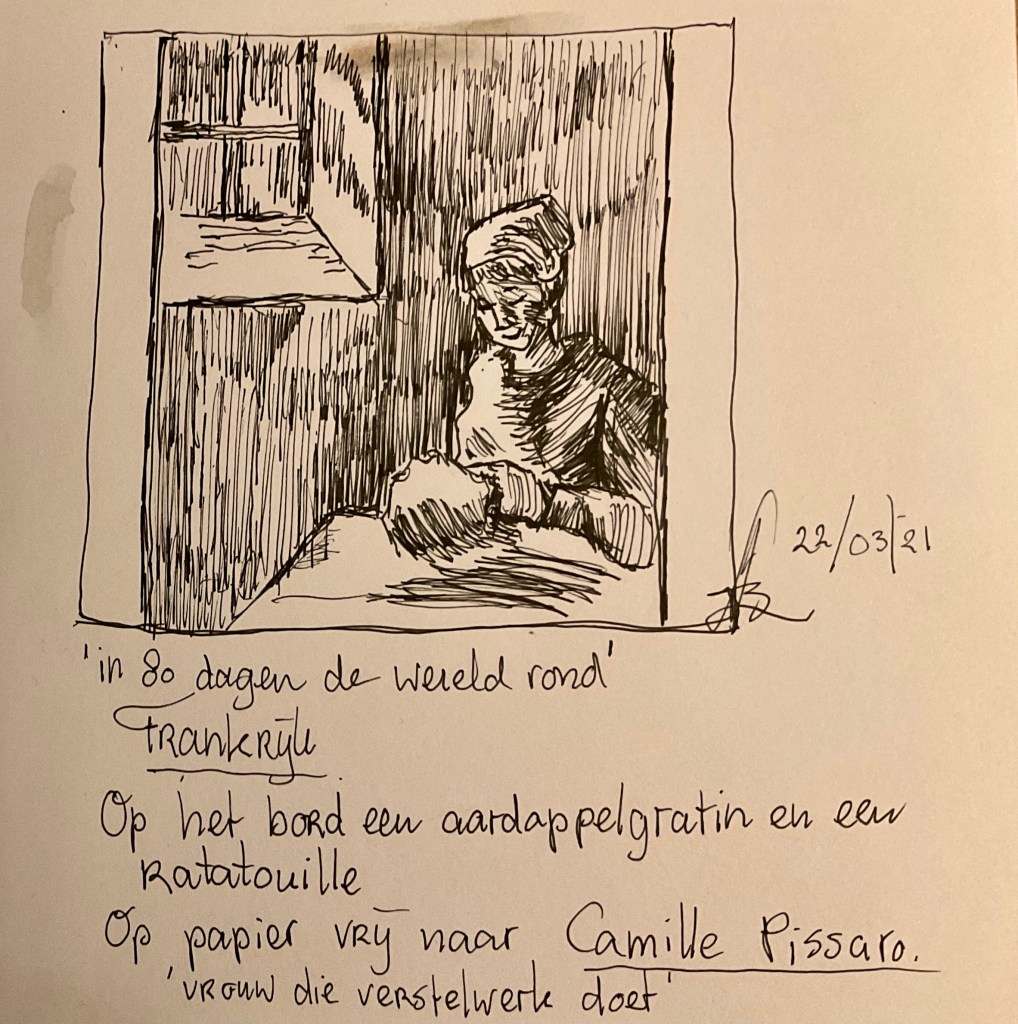 22/03/'21
'in 80 dagen de wereld rond'
Frankrijk
Op het bord een aardappelgratin en een
Ratatouille
Op papier vrij naar Camille Pissaro.
'vrouw die verstelwerk doet'